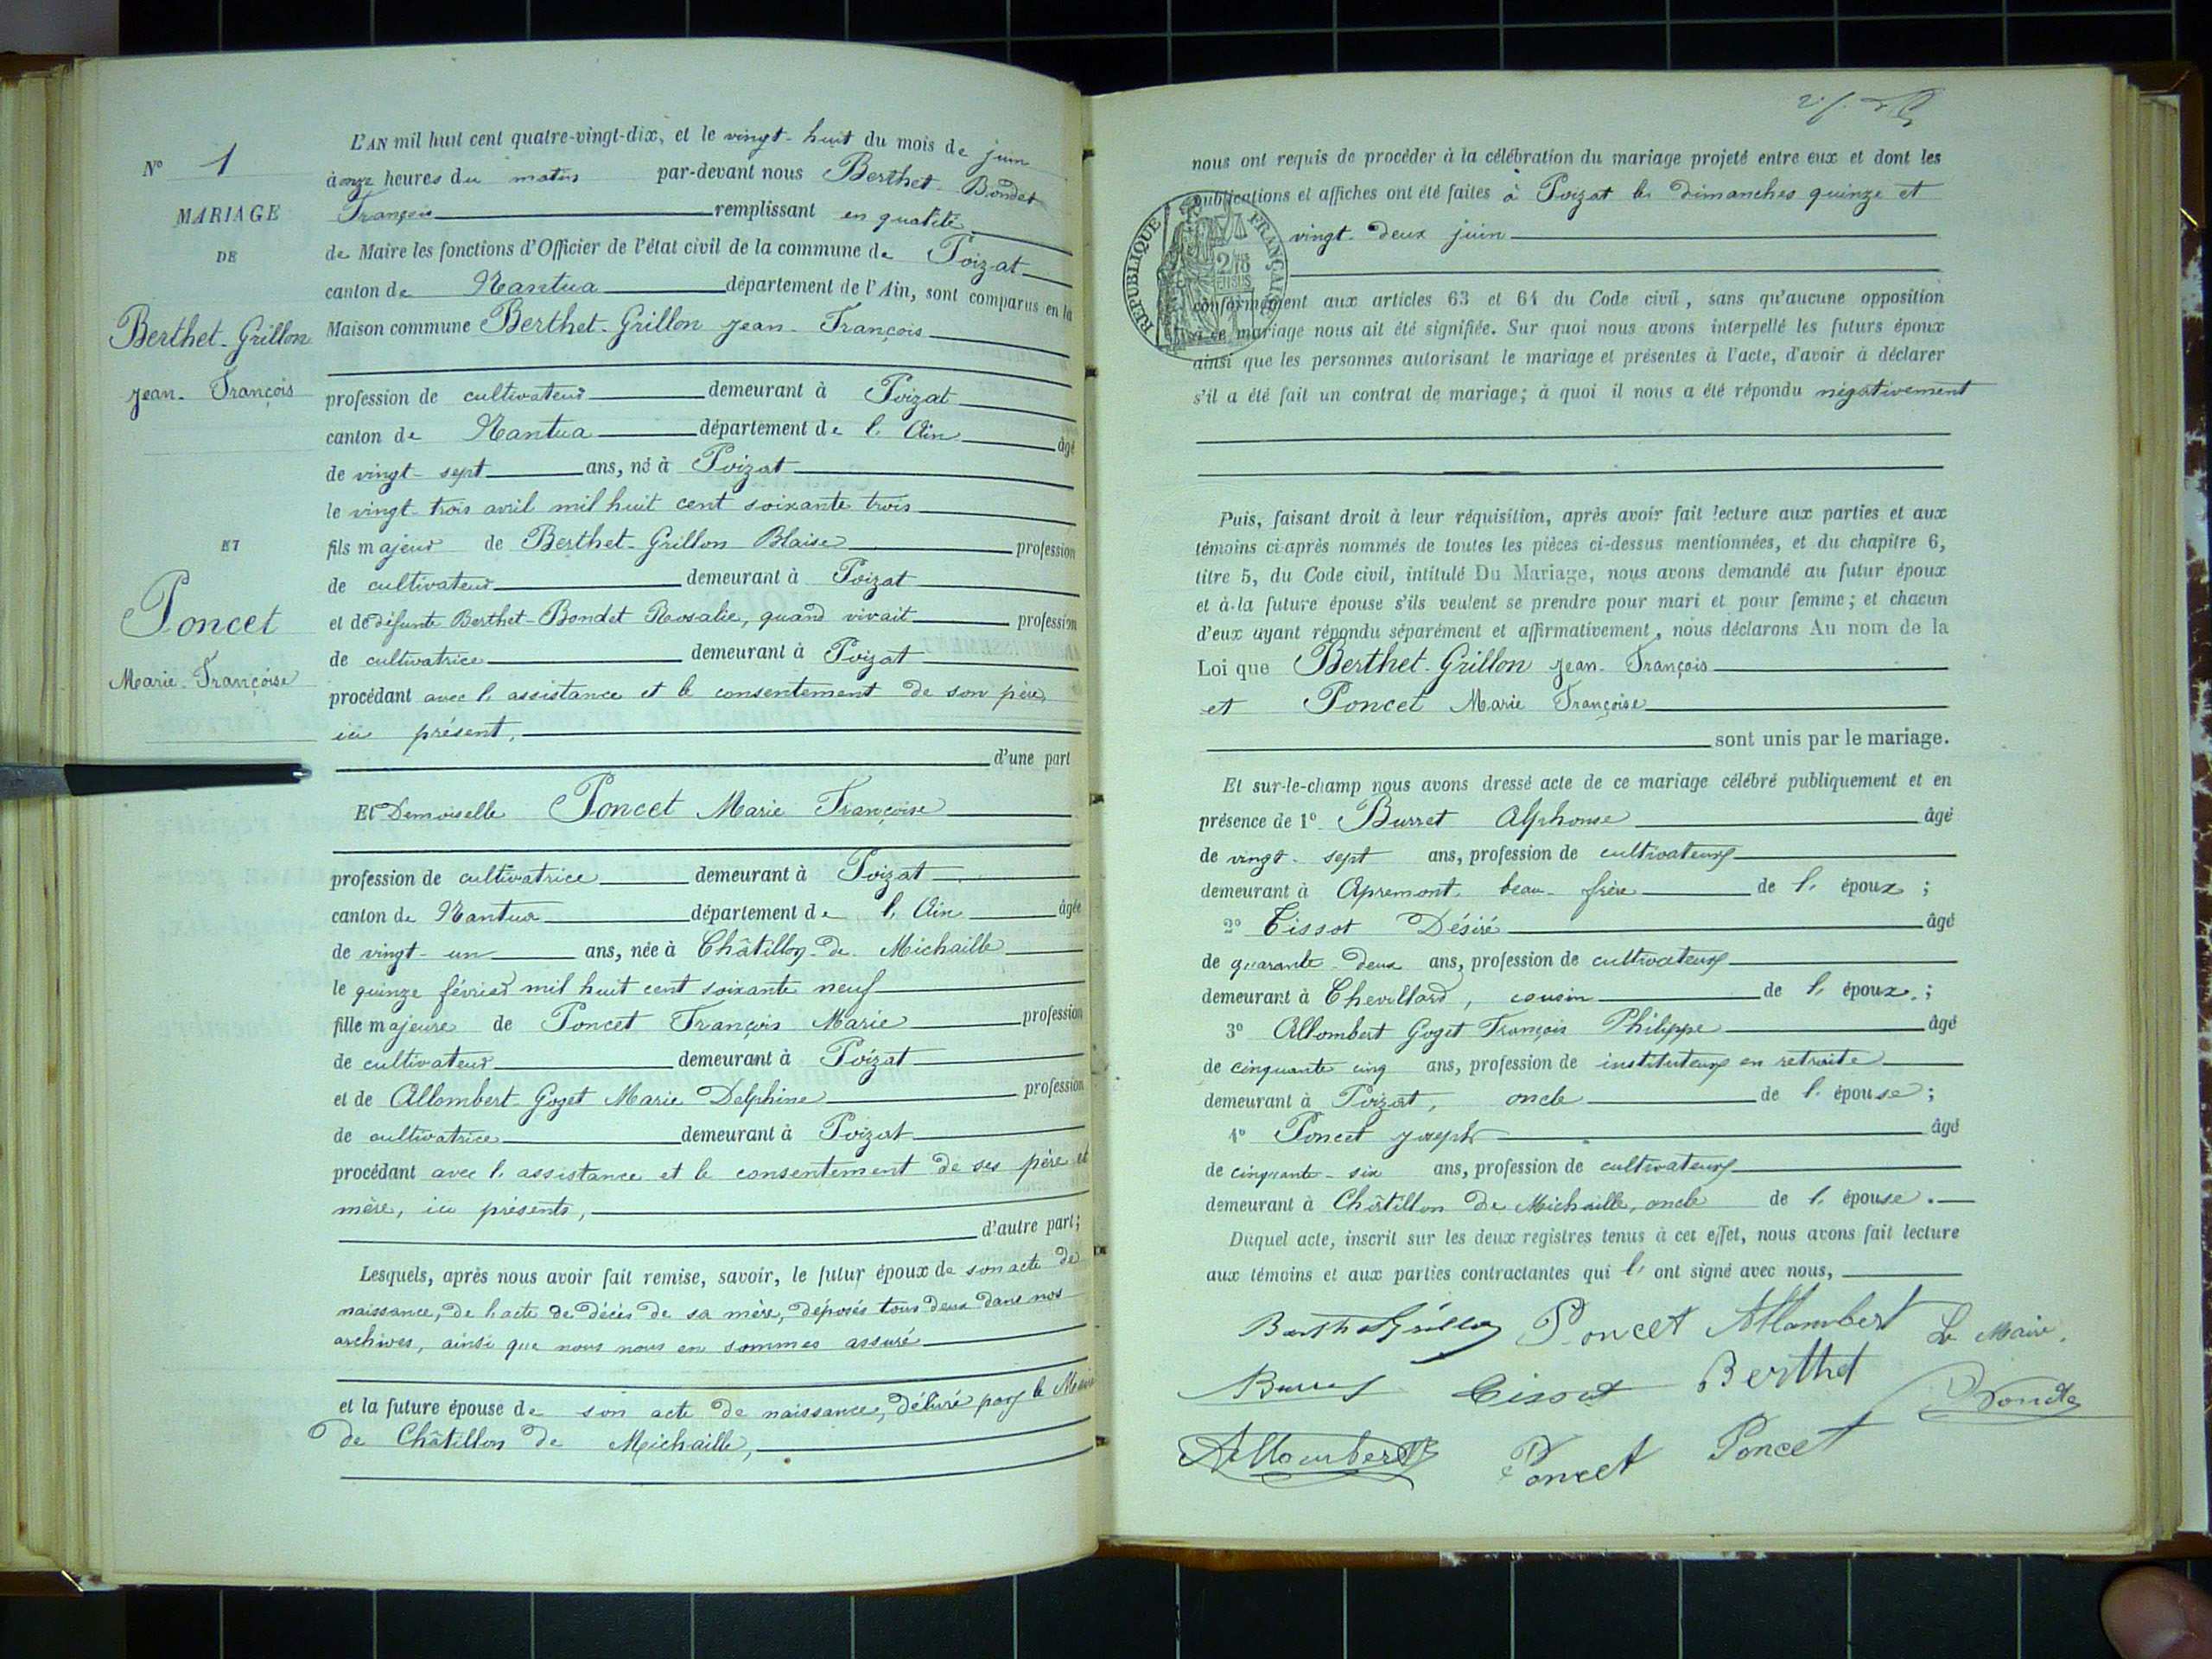 N° 1
MARIAGE
DE
Berthet-Grillon
Jean-François
ET
Poncet
Marie-Françoise
L'AN mil huit cent quatre-vingt-dix, et le vingt-huit du mois de juin
à onze heures du matin par-devant nous Berthet-Bondet
François remplissant en qualité
de Maire les fonctions d'Officier de l'état civil de la commune de Poizat
canton de Nantua département de l'Ain, sont comparus en la
Maison commune Berthet-Grillon Jean-François
profession de cultivateur demeurant à Poizat
canton de Nantua département de l'Ain âgé
de vingt-sept ans, né à Poizat
le vingt-trois avril mil huit cent soixante trois
fils majeur de Berthet-Grillon Blaise profession
de cultivateur demeurant à Poizat
et de défunte Berthet-Bondet Rosalie, quand vivait profession
de cultivatrice demeurant à Poizat
procédant avec l'assistance et le consentement de son père,
ici présent, d'une part
Et Demoiselle Poncet Marie Françoise
profession de cultivatrice demeurant à Poizat
canton de Nantua département de l'Ain âgée
de vingt-un ans, née à Châtillon-de-Michaille
le quinze février mil huit cent soixante neuf
fille majeure de Poncet François Marie profession
de cultivateur demeurant à Poizat
et de Allombert-Goget Marie Delphine profession
de cultivatrice demeurant à Poizat
procédant avec l'assistance et le consentement de ses père et
mère, ici présents,
d'autre part;
Lesquels, après nous avoir fait remise, savoir, le futur époux de son acte de
naissance, de l'acte de décès de sa mère, déposés tous deux dans nos
archives, ainsi que nous nous en sommes assuré
et la future épouse de son acte de naissance, délivré par le Maire
de Châtillon de Michaille,
nous ont requis de procéder à la célébration du mariage projeté entre eux et dont les
publications et affiches ont été faites à Poizat les dimanches quinze et
vingt-deux juin
REPUBLIQUE FRANÇAISE
conformément aux articles 63 et 64 du Code civil, sans qu'aucune opposition
à ce mariage nous ait été signifiée. Sur quoi nous avons interpellé les futurs époux
ainsi que les personnes autorisant le mariage et présentes à l'acte, d'avoir à déclarer
s'il a été fait un contrat de mariage; à quoi il nous a été répondu négativement
Puis, faisant droit à leur réquisition, après avoir fait lecture aux parties et aux
témoins ci-après nommés de toutes les pièces ci-dessus mentionnées, et du chapitre 6,
titre 5, du Code civil, intitulé Du Mariage, nous avons demandé au futur époux
et à la future épouse s'ils veulent se prendre pour mari et pour femme; et chacun
d'eux ayant répondu séparément et affirmativement, nous déclarons Au nom de la
Loi que Berthet-Grillon Jean-François
et Poncet Marie Françoise
sont unis par le mariage.
Et sur-le-champ nous avons dressé acte de ce mariage célébré publiquement et en
présence de 1° Burret Alphonse âgé
de vingt-sept ans, profession de cultivateur
demeurant à Apremont beau-frère de l'époux;
2° Tissot Désiré âgé
de quarante-deux ans, profession de cultivateur
demeurant à Chevillard, cousin de l'époux;
3° Allombert Goget François Philippe âgé
de cinquante cinq ans, profession de instituteur en retraite
demeurant à Poizat, oncle de l'épouse;
4° Poncet Joseph âgé
de cinquante-six ans, profession de cultivateur
demeurant à Châtillon de Michaille, oncle de l'épouse.
Duquel acte, inscrit sur les deux registres tenus à cet effet, nous avons fait lecture
aux témoins et aux parties contractantes qui l'ont signé avec nous,
Poncet Allombert Le Maire.
Tissot Berthet
Allombert Poncet Poncet